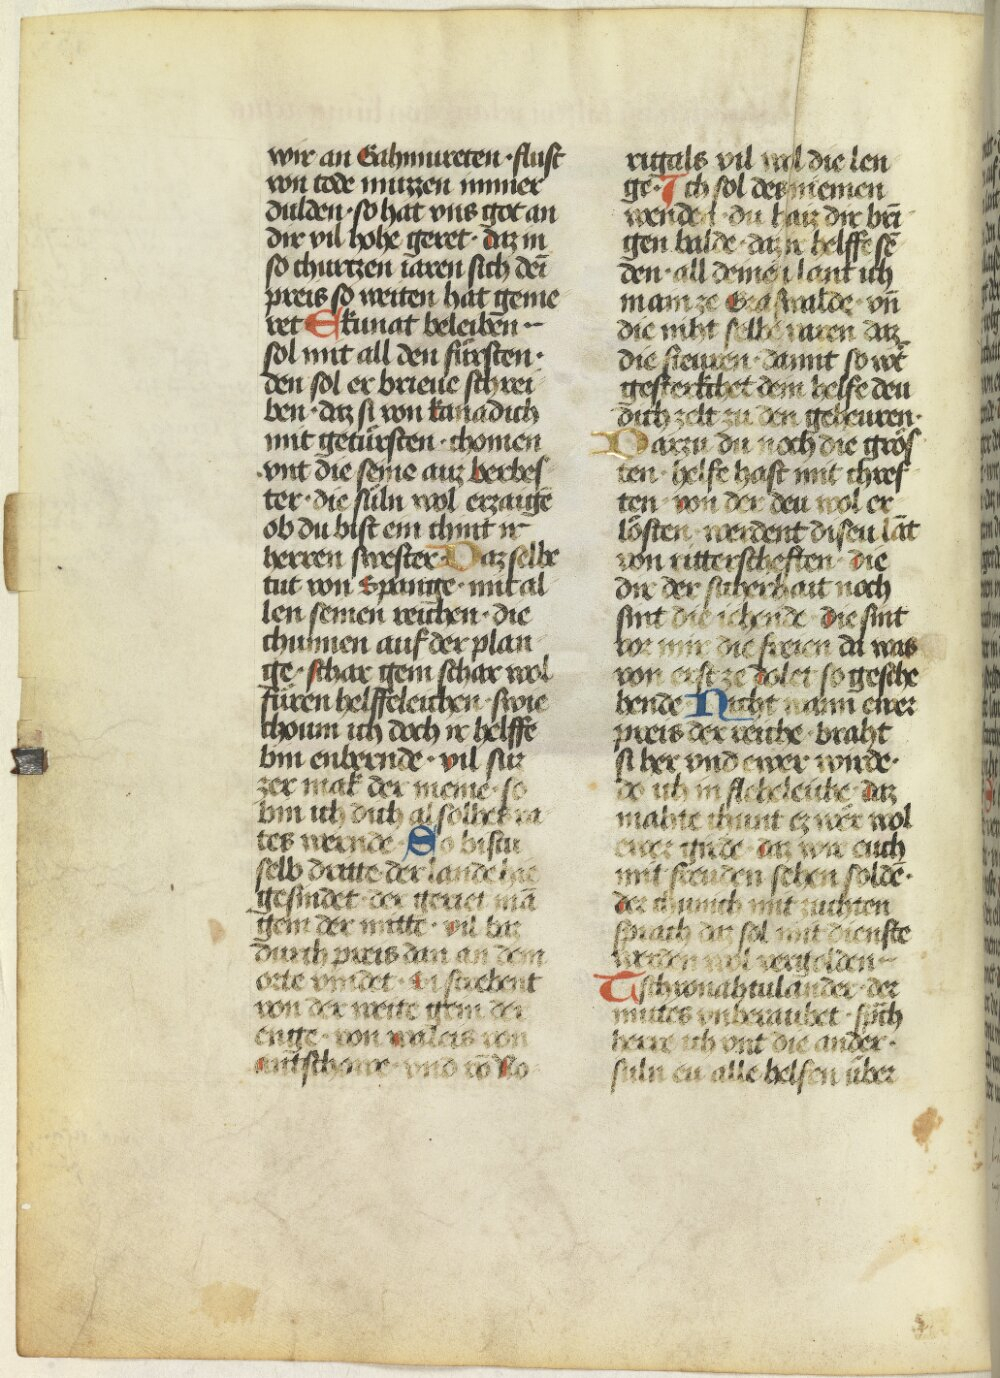 wir an Gahmureten · flust
von tode muzzen immer
dulden · so hat vns got an
dir vil hohe geret · daz in
so churtzen iaren sich dei
preis so weiten hat geme
ret Ekunat beleiben ·-
sol mit all den fürsten ·
den sol er brieue schrei
ben · daz si von kanadich
mit getürsten · chomen
vnt die seine auz berbes
ter · die süln wol erzaigē
ob du bist ein chint ir
herren swester · Daz selbe
tut von Spange · mit al
len seinen reichen · die
chumen auf der plan
ge · schar gein schar wol
füren helffeleichen · swie
choum ich doch ir helffe
bin enbernde · vil sůz
zer mak der meine · so
bin ich dich al solhes ra
tes wernde · So bistu
selb dritte der lande hie
gesindet · der geriet mā
gein der mitte · vil baz
durch preis dan an dem
orte vindet · di strebent
von der weite gein der
enge · von waleis von
antschowe · vnd vō No
rugals vil wol die len
ge · Ich sol des niemen
wenden · du haiz dir brī
gen balde · daz ir helffe sē
den · all deme lant ich
mam ze Graswalde · vn̄
die niht selbe varen daz
die steuren · damit so wē
gesterkchet dem helfe den
dich zelt zu den geheuren ·
Darzu du noch die grös
ten · helfe hast mit ihres
ten · von der deu wol er
lösten · werdent diseu lāt
von ritterscheften · die
dir der sicherhait noch
sint die iehende · die sint
vor mir die freien da was
von erst ze dolet so geschehe
hende Nicht wann ewer
preis der reiche · braht
si her vnd ewer wirde ·
do ich in flehleiche · daz
mahte chunt ez wer wol
ewer girde · daz wir euch
mit freuden sehen soldē ·
der chunich mit zuchten
sprach daz sol mit dienste
werden wol vergolden ·-
Tschionahtulander · der
mutes vnberaubet · sp̄ch
herre ich vnt die ander ·
süln eu alle helfen über